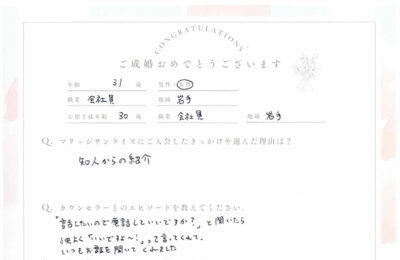 CONGRATULATIONS
ご成婚おめでとうございます
年齢 31 歳 男性・女性
職業 会社員 地域 岩手
お相手様年齢 30 歳 職業 会社員 地域 岩手
Q. マリッジサンライズにご入会したきっかけや選んだ理由は?
知人からの紹介
Q. カウンセラーとのエピソードを教えてください。
「話したいので電話していいですか?」と聞いたら
快よく「いいですよ〜!」って言ってくれて、
いつもお話を聞いてくれました